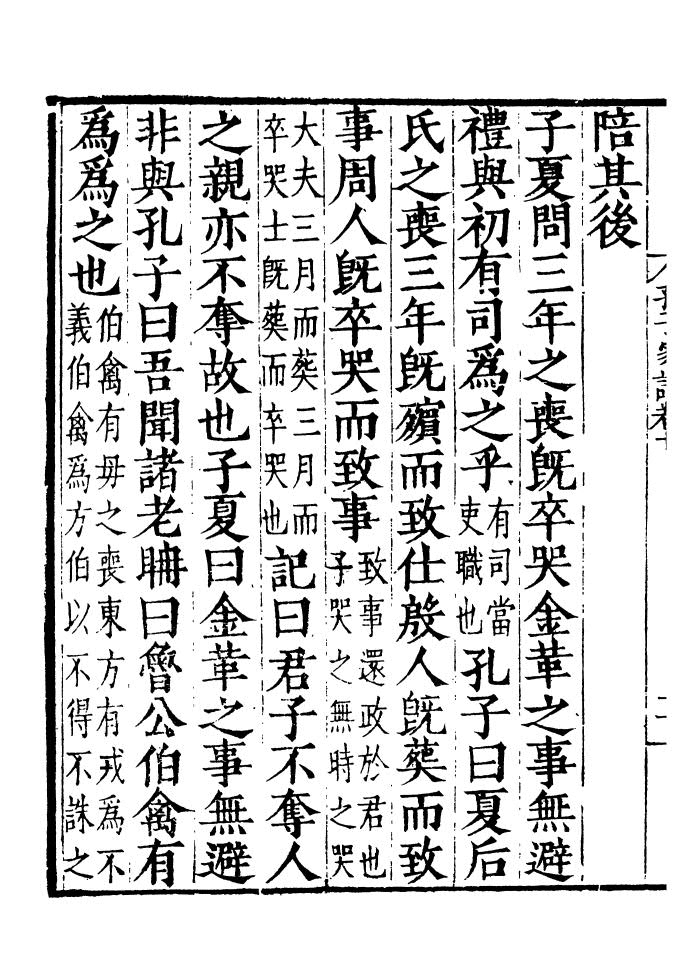 孔子家語卷十
陪其後
子夏問三年之喪旣卒哭金革之事無避
禮與初有司爲之乎有司當吏職也孔子曰夏后
氏之喪三年旣殯而致仕殷人旣葬而致
事周人旣卒哭而致事致事還政於君也子哭之無時之哭
大夫三月而葬三月而卒哭士旣葬而卒哭也記曰君子不奪人
之親亦不奪故也子夏曰金革之事無避
非與孔子曰吾聞諸老聃曰魯公伯禽有
爲爲之也伯禽有毋之喪東方有戎爲不義伯禽爲方伯以不得不誅之